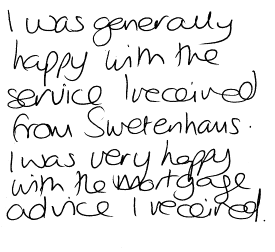 I was generally
happy with the
service I received
from Swetenhams.
I was very happy
with the mortgage
advice I received.